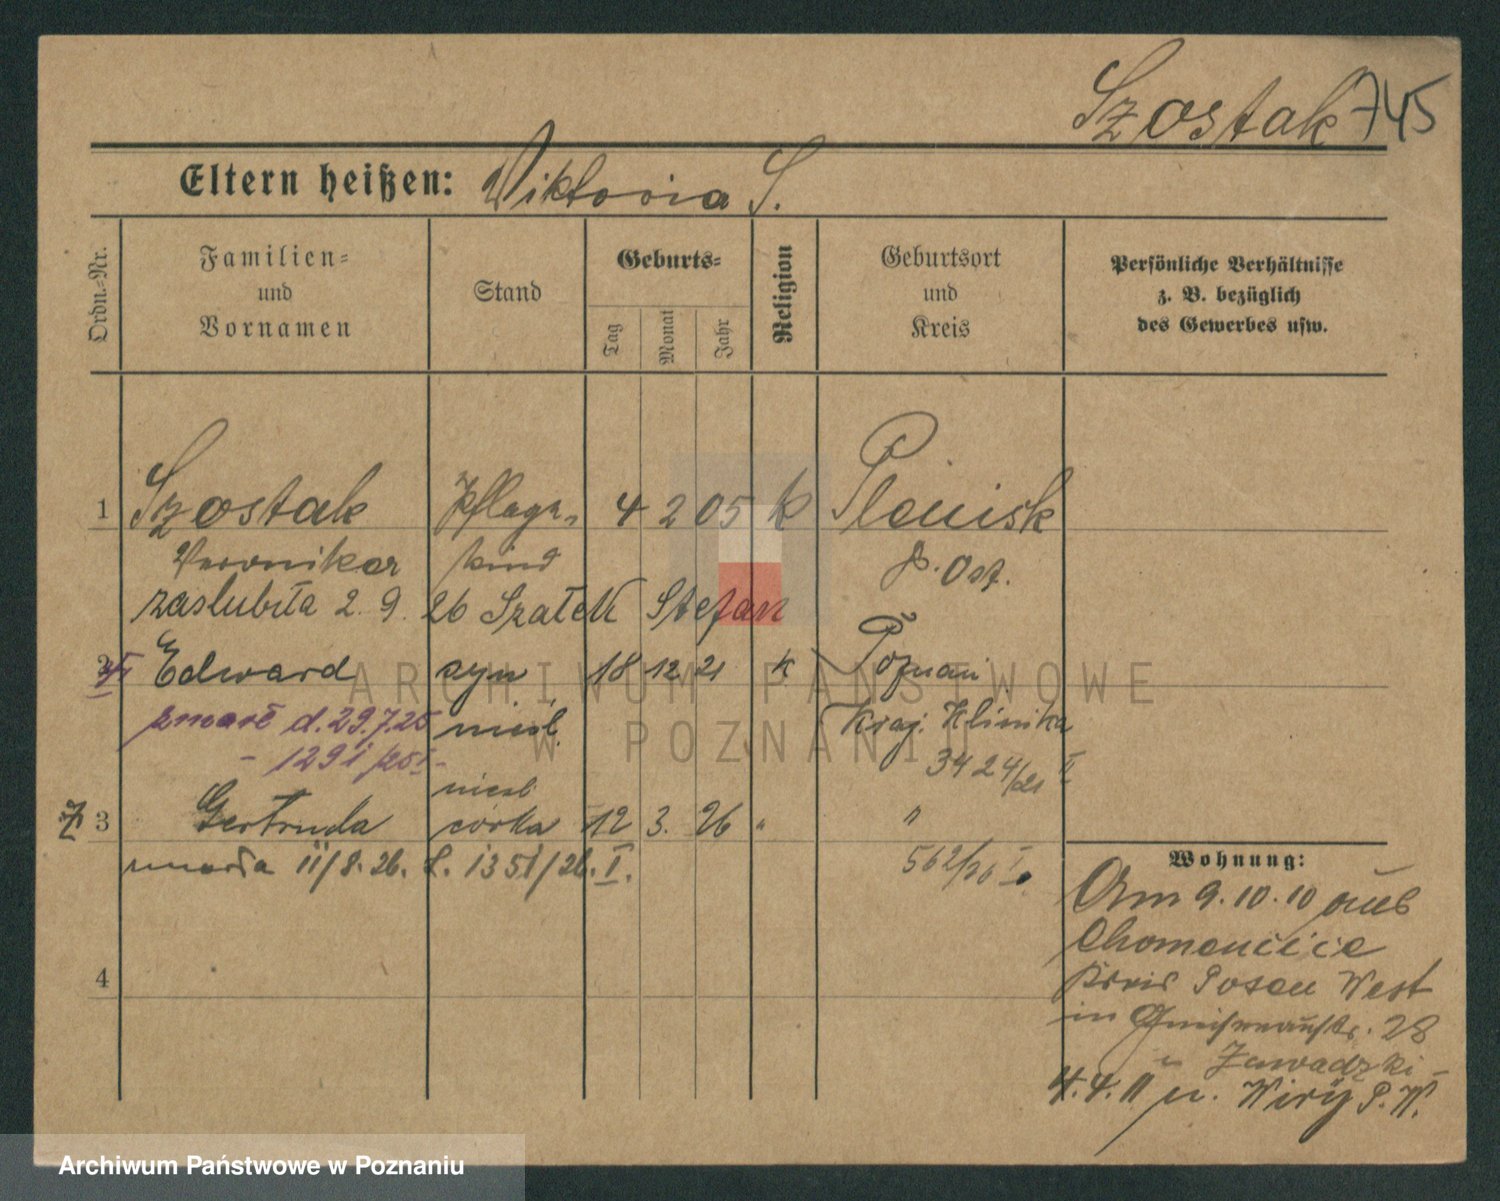 Szostak 745
Eltern heißen: Viktoria S.
Ordn.-Nr.
Familien-
und
Vornamen
Stand
Geburts-
Tag
Monat
Jahr
Religion
Geburtsort
und
Kreis
Persönliche Verhältnisse
z. B. bezüglich
des Gewerbes usw.
1 Szostak Pflege- 4 2 05 k
kind P. Ost.
zaslubiła 2. 9. 26 Szałek Stefan
2 Edward syn 18 12 21 k Poznań
zmarł d. 29.7.25 nieśl. Kraj. Klinika
- 1291/25 I - 3424/21 I
nieśl
3 Gertruda córka 12 3. 26 " "
zmarła 11/8. 26. L. 1351/26. I. 562/26 I.
4
Wohnung:
Am 9.10.10 aus
Chomencice
Kreis Posen West
in Gneisenaustr. 28
u Zawadzki -
4.4.11 u. Wiry P. W.
ARCHIWUM PAŃSTWOWE
W POZNANIU
Archiwum Państwowe w Poznaniu